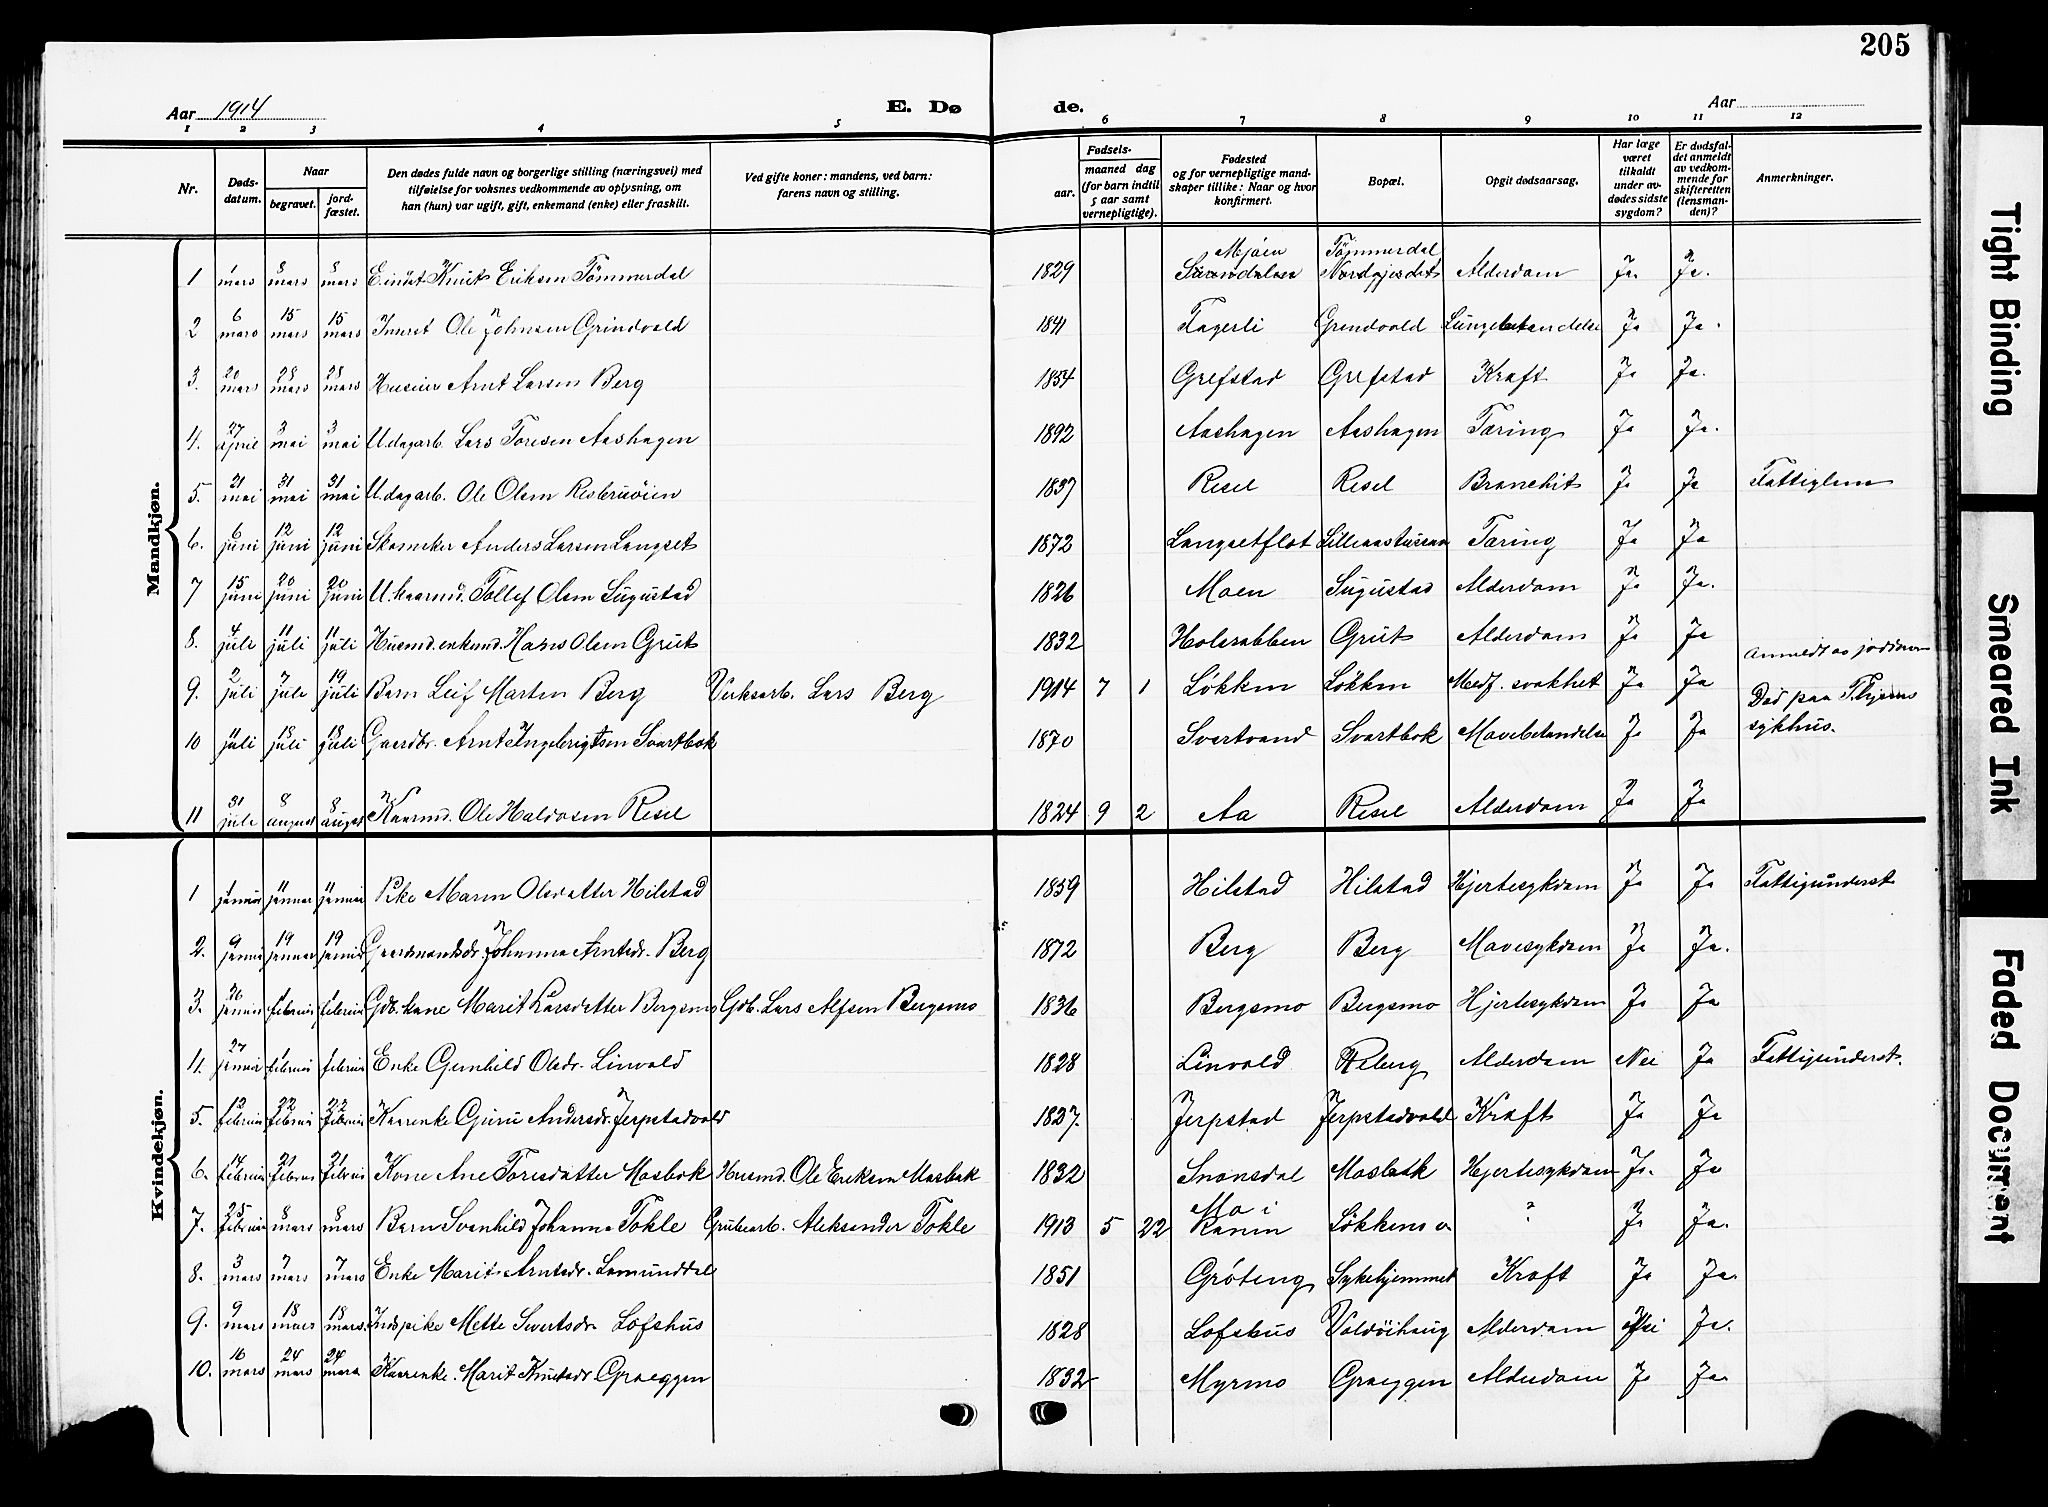 205
Aar 1914
E. Dø
de.
Aar
1 2 3 4 5 6 7 8 9 10 11 12
Nr.
Døds-
datum.
Naar
begravet.
jord-
fæstet.
Den dødes fulde navn og borgerlige stilling (næringsvei) med
tilføielse for voksnes vedkommende av oplysning, om
han (hun) var ugift, gift, enkemand (enke) eller fraskilt.
Ved gifte koner: mandens, ved barn:
farens navn og stilling.
Fødsels-
aar.
maaned dag
(for barn indtil
5 aar samt
vernepligtige).
Fødested
og for vernepligtige mand-
skaper tillike: Naar og hvor
konfirmert.
Bopæl.
Opgit dødsaarsag.
Har læge
været
tilkaldt
under av-
dødes sidste
sygdom?
Er dødsfal-
det anmeldt
av vedkom-
mende for
skifteretten
(lensman-
den)?
Anmerkninger.
Mandkjøn.
1 1 mars 8 mars 8 mars Knut Eriksen Tömmerdal 1829 Mjöen Tömmerdal Alderdom Ja. Ja.
2 6 mars 15 mars 15 mars Ole Johnsen Grindvold 1841 Fagerli Grendvold Lungebetendelse Ja Ja.
3. 20 mars 28 mars 28 mars Arnt Larsen Berg 1854 Grefstad Grefstad Kræft Ja Ja.
4. 27 april 3 mai 3 mai U. dagarb. Lars Toresen Aashagen 1892 Aashagen Aashagen Tæring Ja Ja.
5. 21 mai 31 mai 31 mai U. dagarb. Ole Olsen 1837 Resel Resel Bronchit Ja Ja Fattiglem
6. 6 juni 12 juni 12 juni Skomaker Anders Larsen Langset 1872 Langsetflot Tæring Ja Ja
7 15 juni 20 juni 20 juni U. kaarmd. Tollef Olsen Sugustad 1826 Moen Sugustad Alderdom Ja Ja.
8. 4 juli 11 juli 11 juli Husmd. enkemd. Hans Olsen Grut 1832 Holsrabben Grut Alderdom Ja Ja
9. 2 juli 7 juli 19 juli Barn Leif Martin Berg Verksarb. Lars Berg 1914 7 1 Løkken Løkken Medf. svakhet Ja Ja Anmeldt av
10 11 juli 18 juli 18 juli Gaardbr. Arnt Ingebrigtsen Svartbok 1870 Svartvand Svartbok Mavebetændelse Ja Ja Död paa sykhus.
11 31 juli 8 august 8 august Kaarmd. Ole Haldosen Resel 1824 9 2 Aa Resel Alderdom Ja Ja
Kvindekjøn.
1 januar 11 januar 11 januar Pike Maren Olsdatter Hilstad 1859 Hilstad Hilstad Hjertesykdom Ja Ja Fattigunderst
2. 9 januar 19 januar 19 januar Gaardmandsdr. Johanna Arntsdr. Berg 1872 Berg Berg Mavesykdom Ja Ja.
3. 26 januar 1 februar 1 februar Gdb. kone Marit Larsdatter Bergsmo Gdb. Lars Alfsen Bergsmo 1836 Bergsmo Bergsmo Hjertesykdom Ja Ja
4. 27 januar 1 februar 1 februar Enke Gunhild Olsdr. Linvold 1828 Linvold Alderdom Nei Ja Fattigunderst.
5. 12 februar 22 februar 22 februar Kaarenke Guru Andersdr. Jerpstadvold 1827. Jerpstad Jerpstadvold Kræft Ja Ja
6. 14 februar 21 februar 21 februar Kone Ane Toresdatter Mosbok Husmd. Ole Eriksen Mosbak 1832 Snonsdal Mosbak Hjertesykdom Ja. Ja
7. 25 februar 8 mars 8 mars Barn Svanhild Johanna Tokle Grubearb. Aleksander Tokle 1913 5 22 Mo i Ranen Løkkens v. ? Ja Ja.
8. 3 mars 7 mars 7 mars Enke Marit Arntsdr. Lomunddal 1851 Gröteng Sykehjemmet Kræft Ja Ja.
9. 9 mars 18 mars 18 mars. Indspike Mette Sivertsdr. Lofshus 1828 Lofshus Voldöihaug Alderdom Nei Ja.
10. 16 mars 24 mars 24 mars Kaarenke. Marit Knutsdr. Græggen 1832 Myrmo Græggen Alderdom Ja Ja
Tight Binding
Smeared Ink
Faded Document